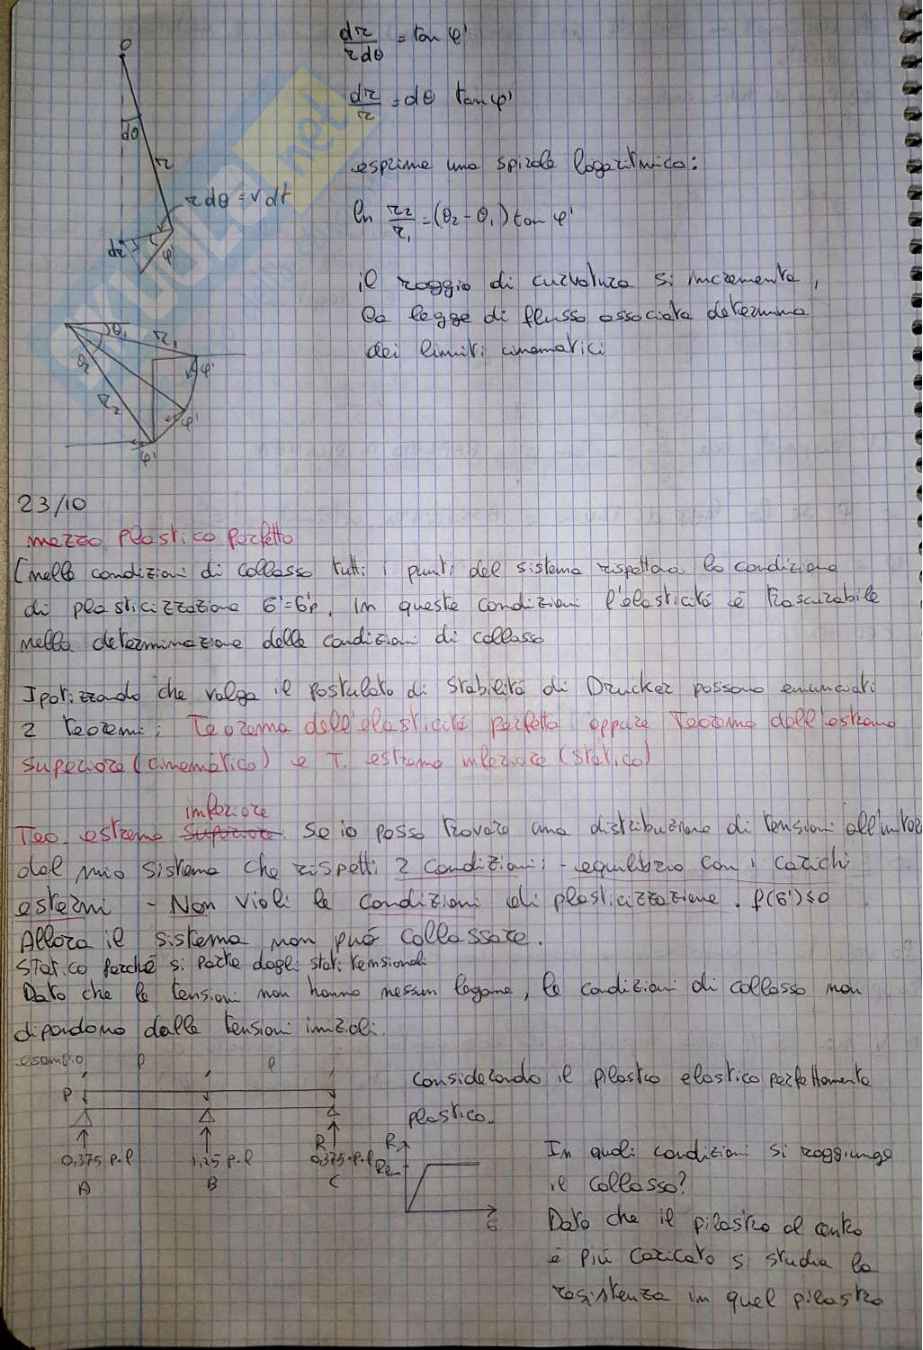 O
dr/rdθ = tan φ'
dθ
dr/r = dθ tan φ'
r
esprime una spirale logaritmica:
rdθ = vdt
ln r2/r1 = (θ2 - θ1) tan φ'
dr
φ'
il raggio di curvatura si incrementa,
la legge di flusso associata determina
dei limiti cinematici
θ1
r1
θ2
r2
φ'
φ'
φ'
SKUOLA.net
23/10
mezzo plastico perfetto
[nelle condizioni di collasso tutti i punti del sistema rispettano la condizione
di plasticizzazione σ'=σ'p. In queste condizioni l'elasticità è trascurabile
nella determinazione delle condizioni di collasso
Ipotizzando che valga il postulato di stabilità di Drucker possono enunciarsi
2 teoremi: Teorema dell'elasticità perfetta oppure Teorema dell'estremo
superiore (cinematico) e T. estremo inferiore (statico)
inferiore
Teo. estremo superiore se io posso trovare una distribuzione di tensioni all'interno
del mio sistema che rispetti 2 condizioni: - equilibrio con i carichi
esterni - Non violi le condizioni di plasticizzazione. f(σ')≤0
Allora il sistema non può collassare.
Statico perché si parte dagli stati tensionali
Dato che le tensioni non hanno nessun legame, le condizioni di collasso non
dipendono dalle tensioni iniziali.
esempio
l l
Considerando il pilastro elastico perfettamente
plastico.
P
0,375 p·l 1,25 p·l R 0,375·p·l
A B C
R
In quali condizioni si raggiunge
il collasso?
Dato che il pilastro al centro
è più caricato si studia la
resistenza in quel pilastro